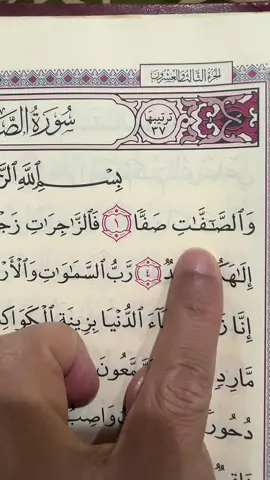 الجزء الثالث والعشرون
سُورَةُ الصَّ
ترتيبها
٣٧
بِسْمِ ٱللَّهِ ٱلرَّ
وَٱلصَّٰٓفَّٰتِ صَفًّا ١ فَٱلزَّٰجِرَٰتِ زَجْ
إِلَٰهَ دٌ ٤ رَّبُّ ٱلسَّمَٰوَٰتِ وَٱلْأَرْ
إِنَّا زَ ءَ ٱلدُّنْيَا بِزِينَةٍ ٱلْكَوَاكِ
مَّارِدٍ مَّعُونَ
دُحُورً وَاصِبٌ